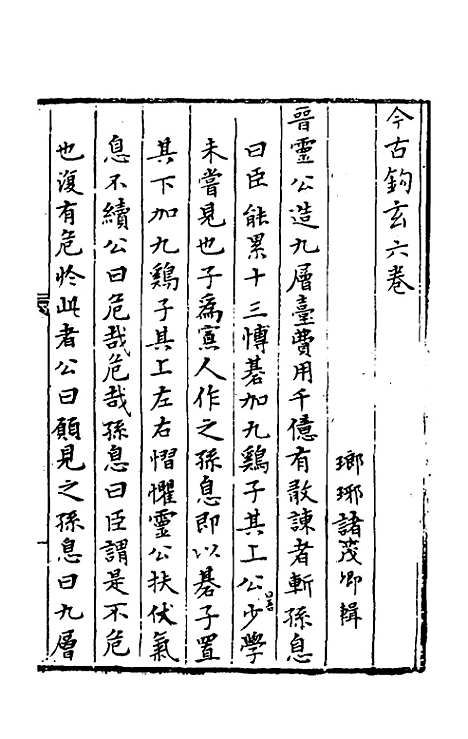 今古鉤玄六卷
瑯琊諸茂卿輯
晉靈公造九層臺費用千億有敢諫者斬孫息
曰臣能累十三博碁加九鷄子其上公曰吾少學
未嘗見也子為寡人作之孫息即以碁子置
其下加九鷄子其上左右慴懼靈公扶伏氣
息不續公曰危哉危哉孫息曰臣謂是不危
也復有危於此者公曰願見之孫息曰九層